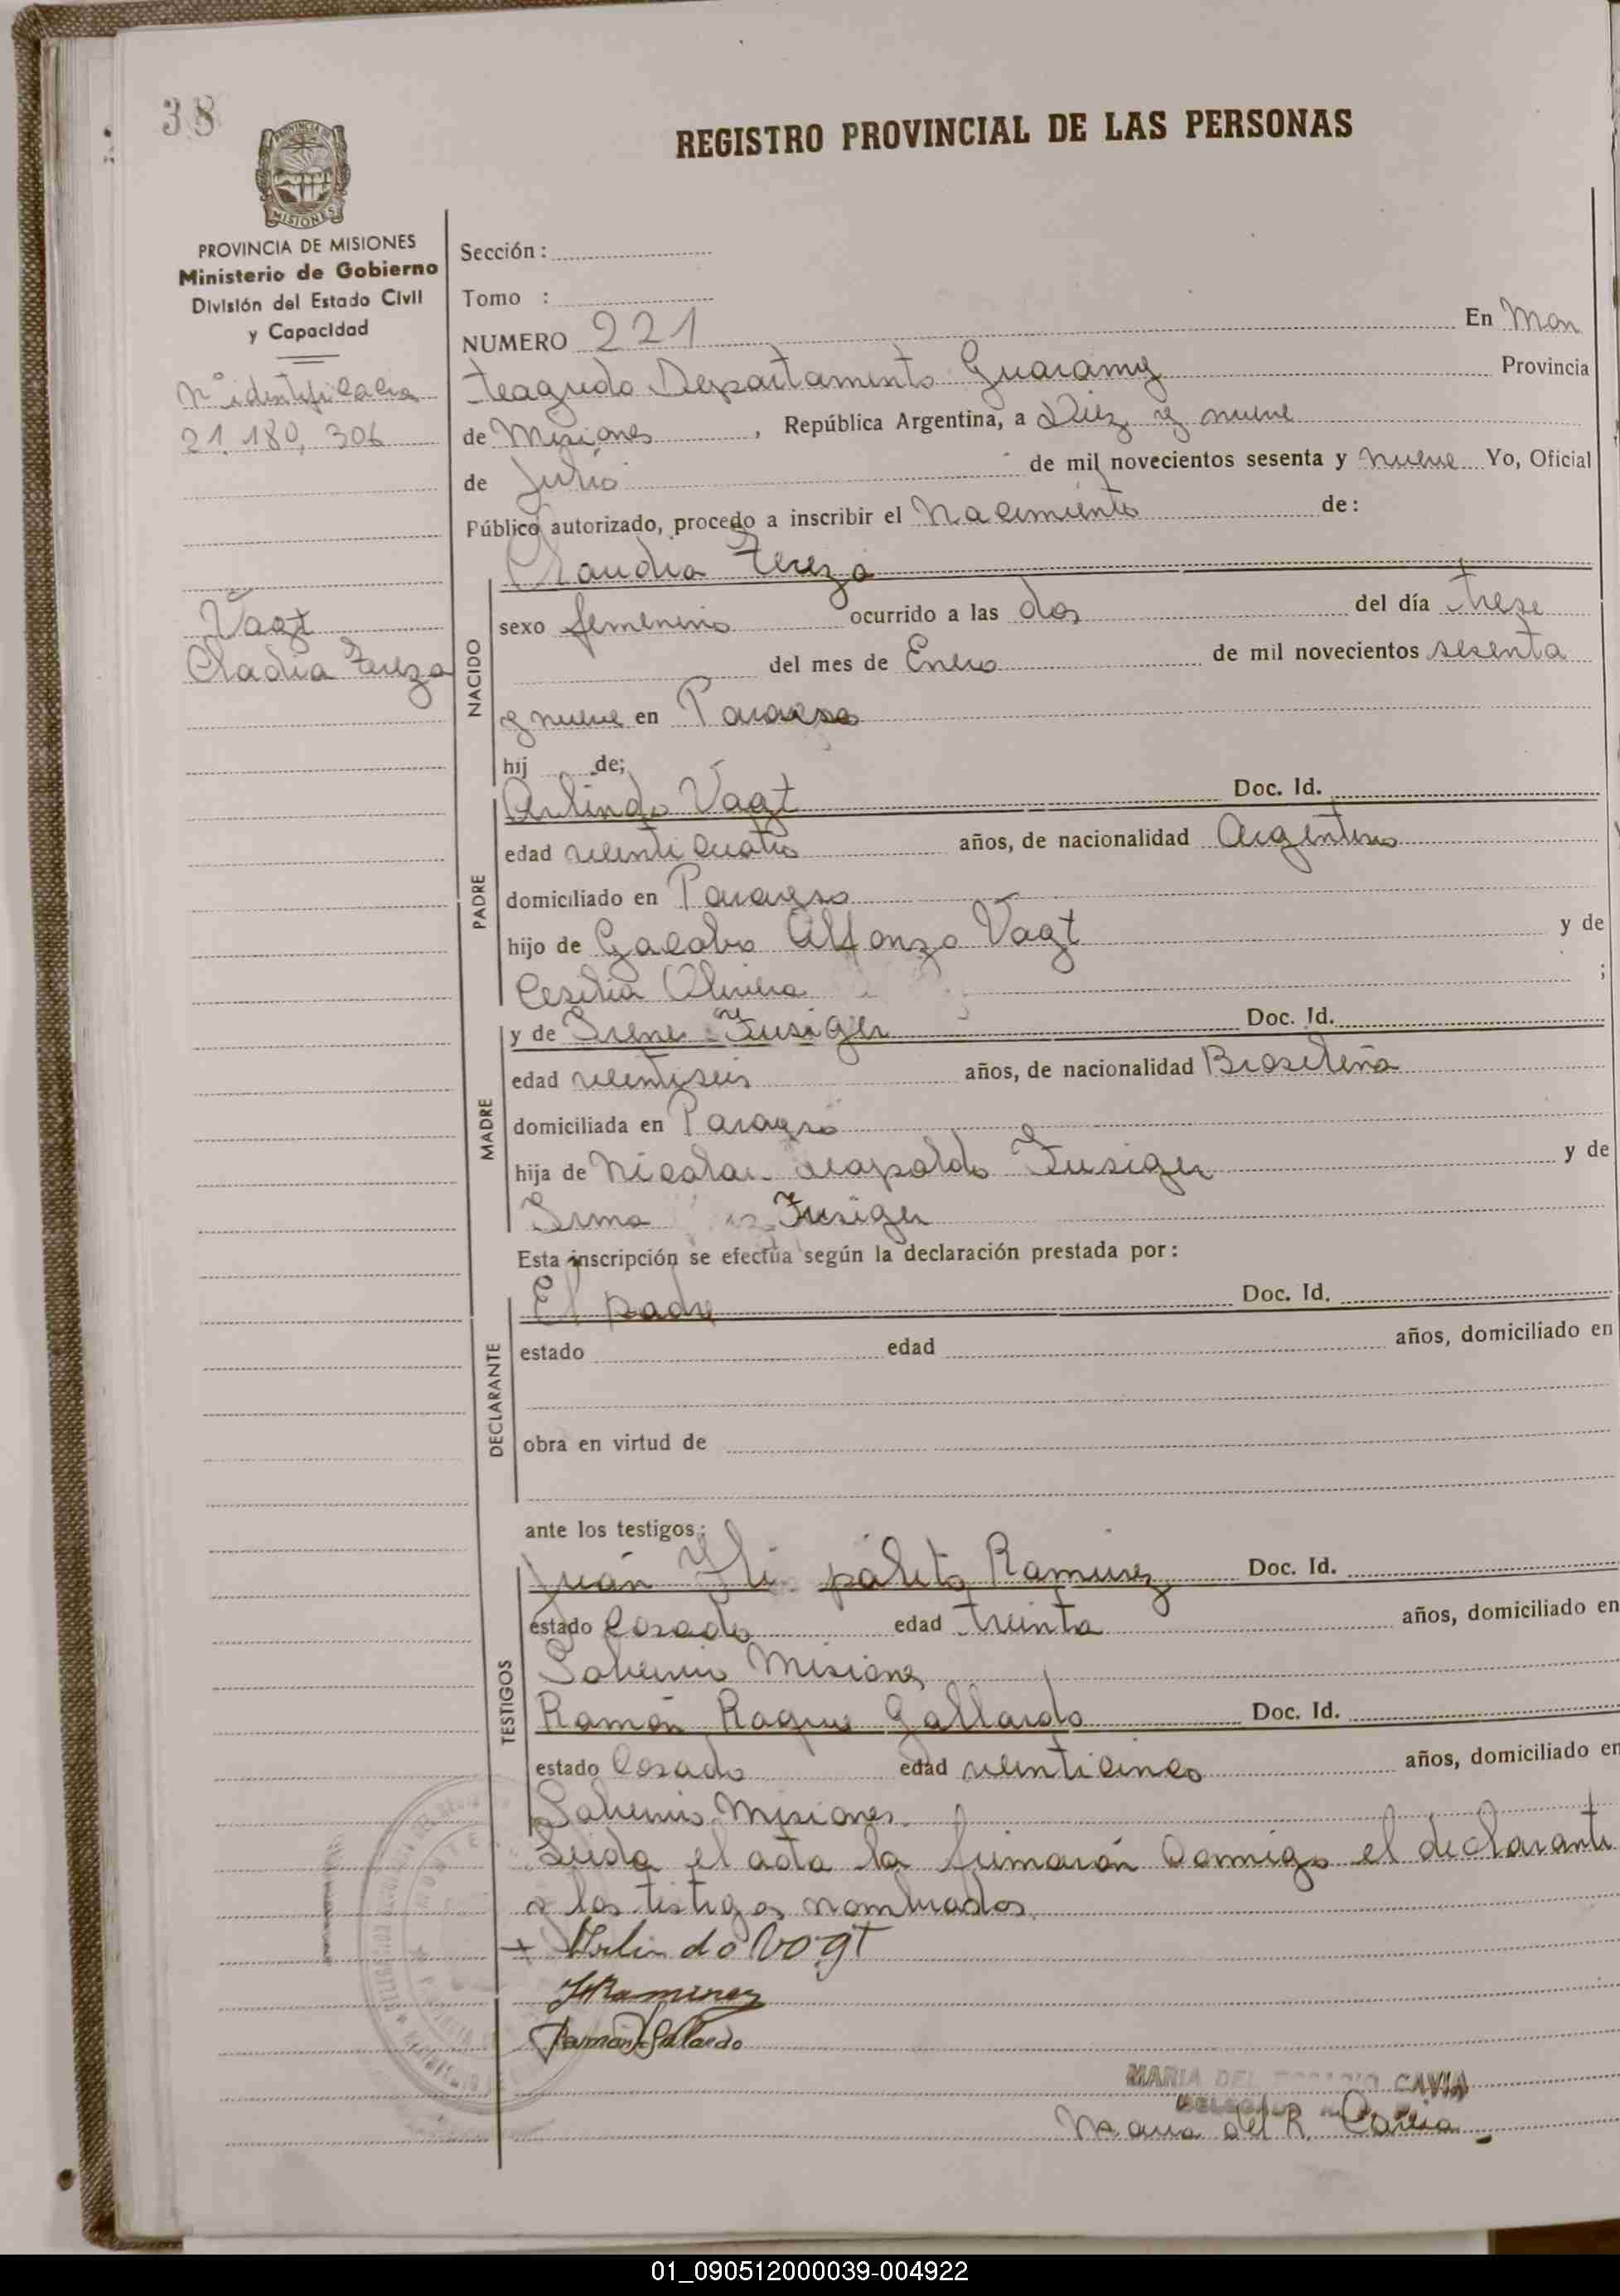 38
REGISTRO PROVINCIAL DE LAS PERSONAS
PROVINCIA DE
MISIONES
PROVINCIA DE MISIONES
Ministerio de Gobierno
División del Estado Civil
y Capacidad
Nº identificacia
21.180,306
Vagt
Cladia Tereza
Sección :
Tomo :
NUMERO 221 En Mon
teagudo Departamento Guaramy Provincia
de Misiones , República Argentina, a Diez y nueve
de Julio de mil novecientos sesenta y nueve Yo, Oficial
Público autorizado, procedo a inscribir el Nacimiento de :
NACIDO
Claudia Tereza
sexo femenino ocurrido a las dos del día treze
del mes de Enero de mil novecientos sesenta
y nueve en Paraeso
hij de;
PADRE
Arlindo Vagt Doc. Id.
edad veinticuatro años, de nacionalidad Argentino
domiciliado en Paraeso
hijo de Gacobo Alfonzo Vagt y de
Cesilia Olivera ;
MADRE
y de Irene Fusiger Doc. Id.
edad veintiseis años, de nacionalidad Brasileña
domiciliada en Paraeso
hija de Nicolau Leopoldo Fusiger y de
Irma Fusiger
Esta inscripción se efectúa según la declaración prestada por :
DECLARANTE
El padre Doc. Id.
estado edad años, domiciliado en
obra en virtud de
ante los testigos :
TESTIGOS
Juán Hi politó Ramirez Doc. Id.
estado Casado edad treinta años, domiciliado en
Sobernio Misiones
Ramón Roque Gallardo Doc. Id.
estado Casado edad veinticinco años, domiciliado en
Sobernio Misiones.
Leida el acta la firmarón Conmigo el declarante
y los testigos nombrados.
+ Arlindo Vogt
JHRamirez
Ramon Gallardo
MARIA DEL CAVIA
Maria del R. Cavia
01_090512000039-004922